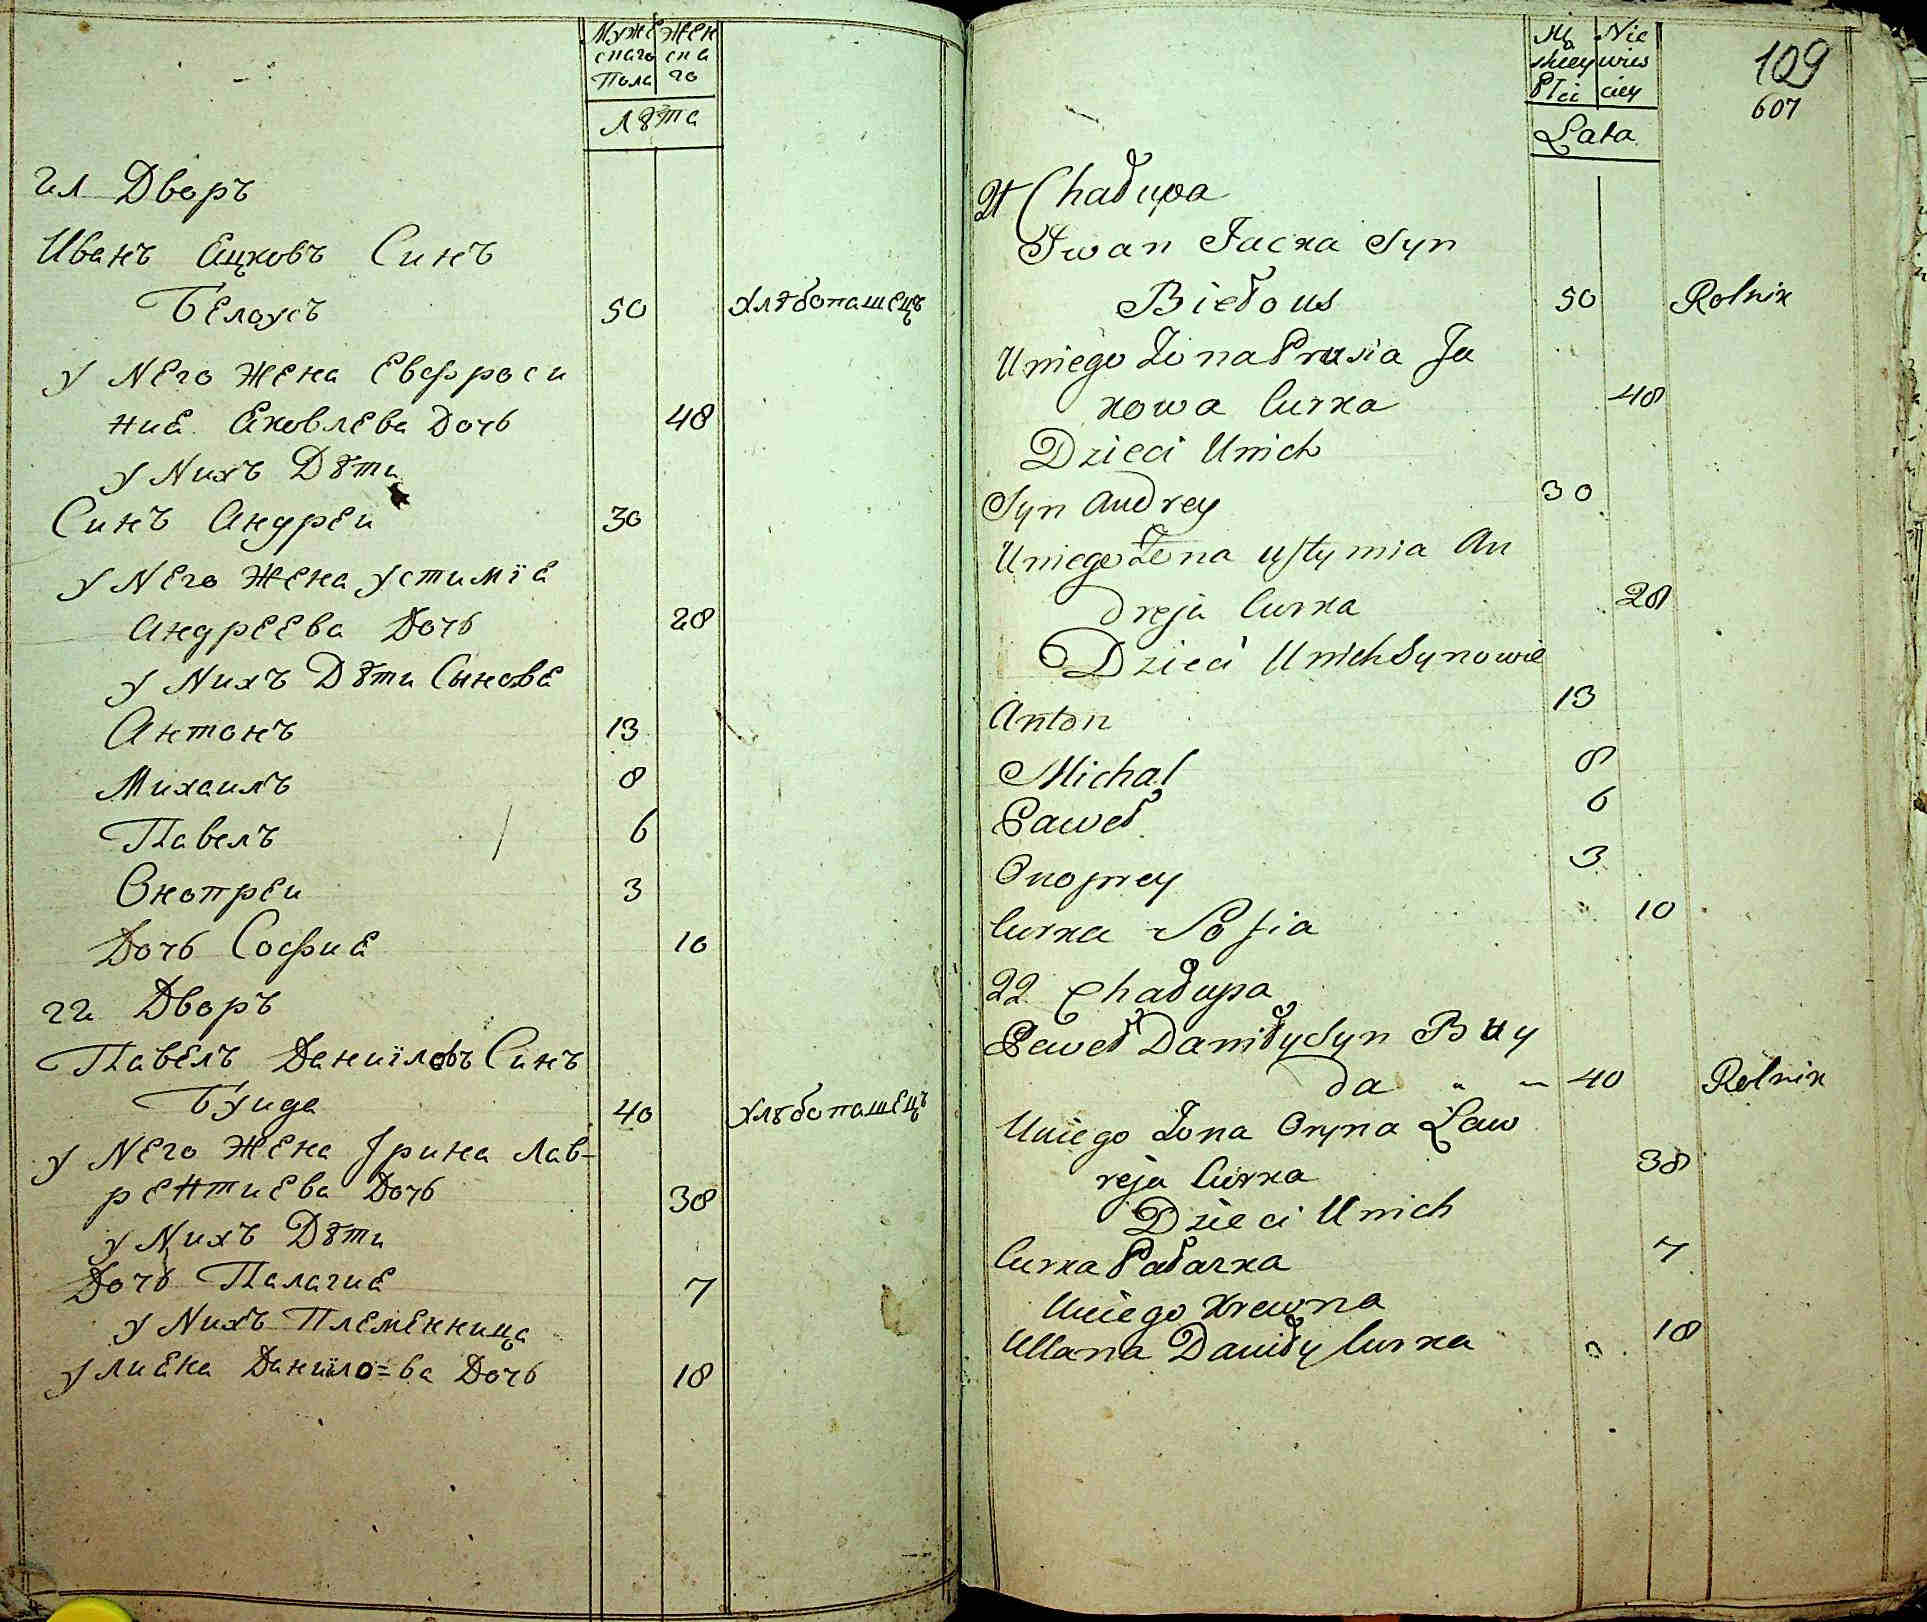 Муже Жен
скаго ска
Пола го
Лѣта
21 Дворъ
Иванъ Яцковъ Синъ
Белоусъ 50 Хлѣбопашецъ
у Него Жена Евфроси
ния Яковлева Дочь 48
у Нихъ Дѣти
Синъ Андреи 30
у Него Жена Устимїя
Андреева Дочь 28
у Нихъ Дѣти Сынове
Антонъ 13
Михаилъ 8
Павелъ 6
Онопреи 3
Дочь София 10
22 Дворъ
Павелъ Данїиловъ Синъ
Буида 40 Хлѣбопашецъ
у Него Жена Ірина Лав-
рентиева Дочь 38
у Нихъ Дѣти
Дочь Палагия 7
у Нихъ Племенница
Улияна Данїило=ва Дочь 18
Mę Nie
skiey wies
Płci ciey
Lata
109
607
21 Chałupa
Iwan Jacka Syn
Biełous 50 Rolnik
Uniego Żona Prusia Ja
kowa Curka 48
Dzieci Unich
Syn Andrey 30
Uniego Żona Ustymia An
dreja Curka 28
Dzieci Unich Synowie
Anton 13
Michal 8
Paweł 6
Onoprey 3
Curka Sofia 10
22 Chałupa
Paweł Daniły Syn Buy
da " " 40 Rolnik
Uniego Żona Oryna Law
reja Curka 38
Dzieci Unich
Curka Pałarka 7
Uniego Krewna
Ullana Daniły Curka 18